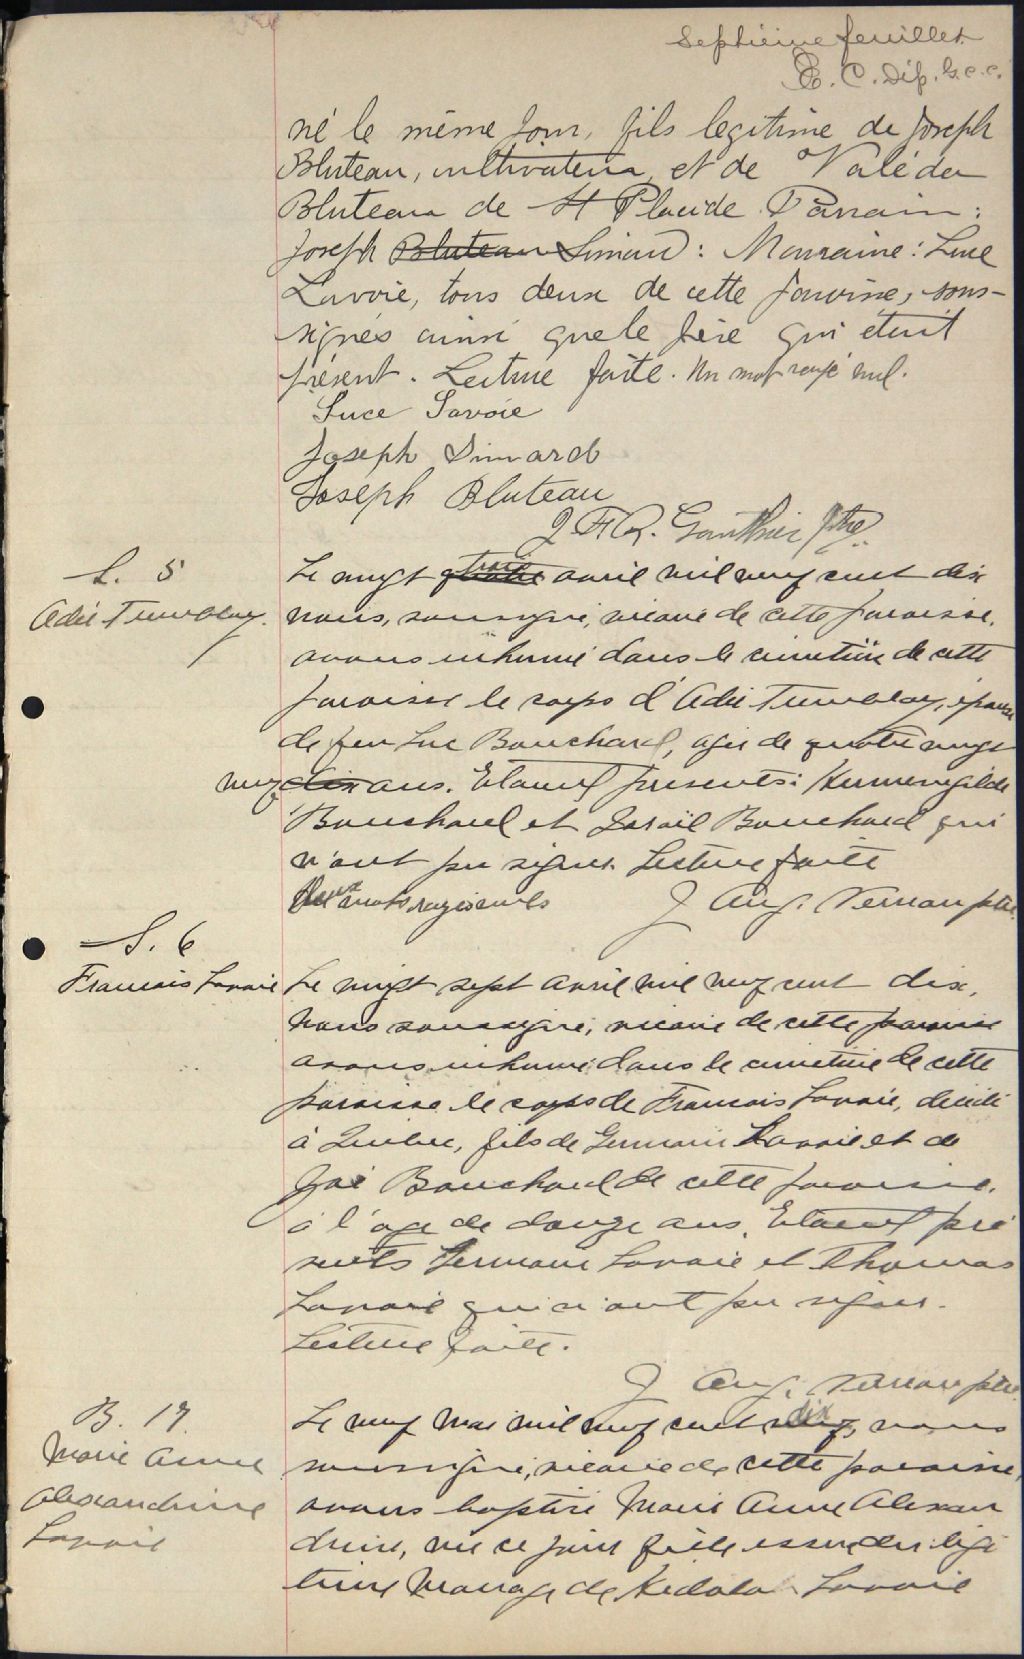 Septième feuillet
E. C. Dép. G.C.C.
né le même jour, fils legitime de Joseph
Bluteau, cultivateur, et de Valéda
Bluteau de St Placide. Parrain:
Joseph Bluteau Simard: Marraine: Luce
Lavoie, tous deux de cette paroisse, sous-
signés ainsi que le père qui était
présent. Lecture faite. Un mot rayé nul.
Luce Lavoie
Joseph Simard
Joseph Bluteau
Gauthier Ptre
S. 5
Adée Tremblay.
Le vingt quatre trois avril mil neuf cent dix
nous, soussigné, vicaire de cette paroisse,
avons inhumé dans le cimetière de cette
paroisse le corps d'Adée Tremblay, épouse
de feu Luc Bouchard, agée de quatre vingt
neuf dix ans. Etaient présents: Hermenegilde
Bouchard et Israil Bouchard qui
n'ont pu signer. Lecture faite
Deux mots rayés nuls
J Aug. ptre.
S. 6
Francois Lavoie
Le vingt sept avril mil neuf cent dix,
Nous soussigné, vicaire de cette paroisse
avons inhumé dans le cimetière de cette
paroisse le corps de Francois Lavoie, décédé
à Quebec, fils de Germain Lavoie et de
Bouchard de cette paroisse,
à l'age de douze ans. Etaient pré
sents Germain Lavoie et Thomas
Lavoie qui n'ont pu signer.
Lecture faite.
J Aug. ptre.
B. 17
Marie Anne
Alexandrine
Lavoie
Le neuf mai mil neuf cent neuf dix, nous
soussigné, vicaire de cette paroisse,
avons baptisé Marie Anne Alexan
drine, née ce jour fille issue du légi
time mariage de Lavoie